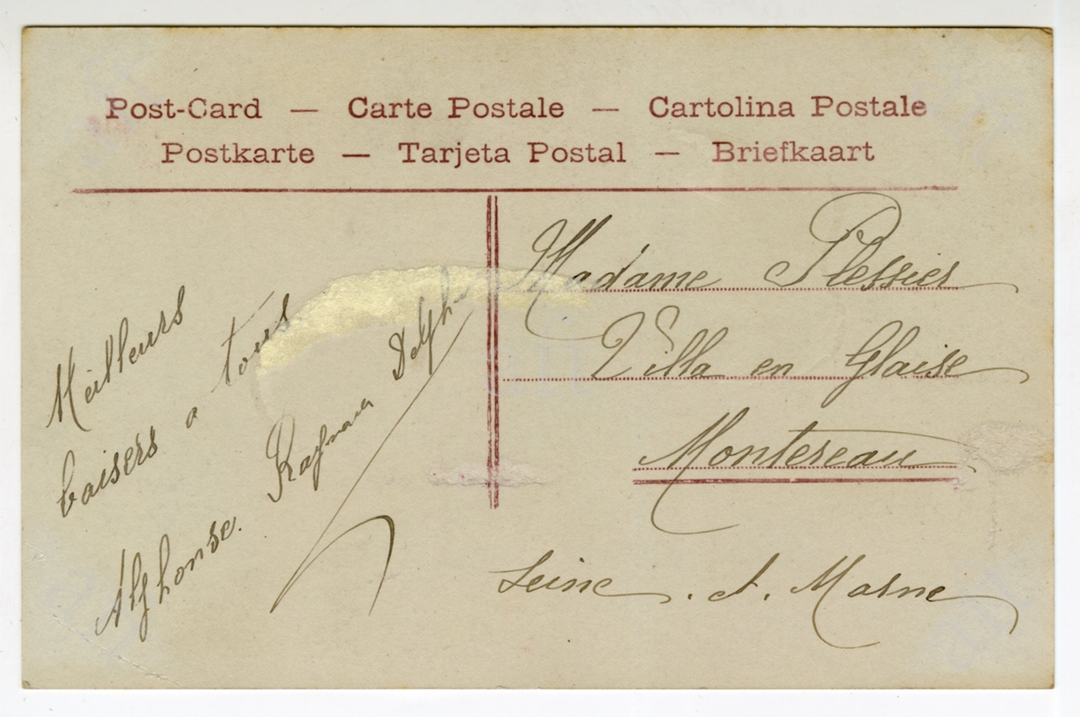 Post-Card — Carte Postale — Cartolina Postale
Postkarte — Tarjeta Postal — Briefkaart
Meilleurs
baisers a tous
Alphonse.
Madame Plessier
Villa en Glaise
Montereau
Seine . et . Marne